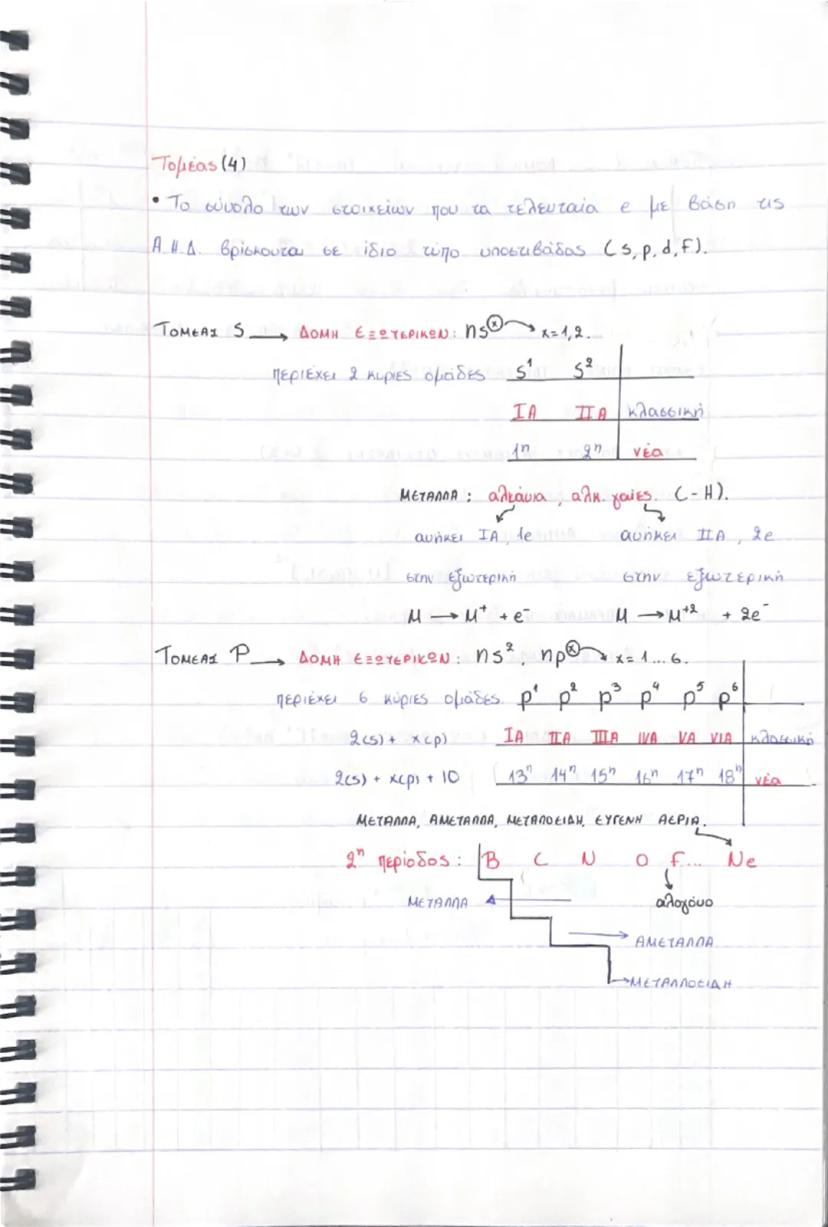 Τομέας (4)
• Το σύνολο των στοιχείων που τα τελευταία e με βάση τις
Α.Η.Δ. βρίσκονται σε ίδιο τύπο υποστιβάδας (s, p, d, f).
ΤΟΜΕΑΣ S → ΔΟΜΗ ΕΞΩΤΕΡΙΚΩΝ: ns^(x) → x=1,2.
περιέχει 2 κύριες ομάδες s¹ s²
IA IIA κλασσική
1η 2η νέα
ΜΕΤΑΛΛΑ: αλκάλια, αλκ. γαίες. (-H).
ανήκει IA, 1e ανήκει IIA, 2e
στην εξωτερική στην εξωτερική
M → M⁺ + e⁻ M → M⁺² + 2e⁻
ΤΟΜΕΑΣ P → ΔΟΜΗ ΕΞΩΤΕΡΙΚΩΝ: ns², np^(x) → x=1...6.
περιέχει 6 κύριες ομάδες. p¹ p² p³ p⁴ p⁵ p⁶
2(s) + x(p) IA IIA IIIA IVA VA VIA κλασσική
2(s) + x(p) + 10 13η 14η 15η 16η 17η 18η νέα
ΜΕΤΑΛΛΑ, ΑΜΕΤΑΛΛΑ, ΜΕΤΑΛΟΕΙΔΗ, ΕΥΓΕΝΗ ΑΕΡΙΑ.
2η περίοδος: B C N O F... Ne
ΜΕΤΑΛΛΑ αλογόνο
ΑΜΕΤΑΛΛΑ
ΜΕΤΑΛΛΟΕΙΔΗ